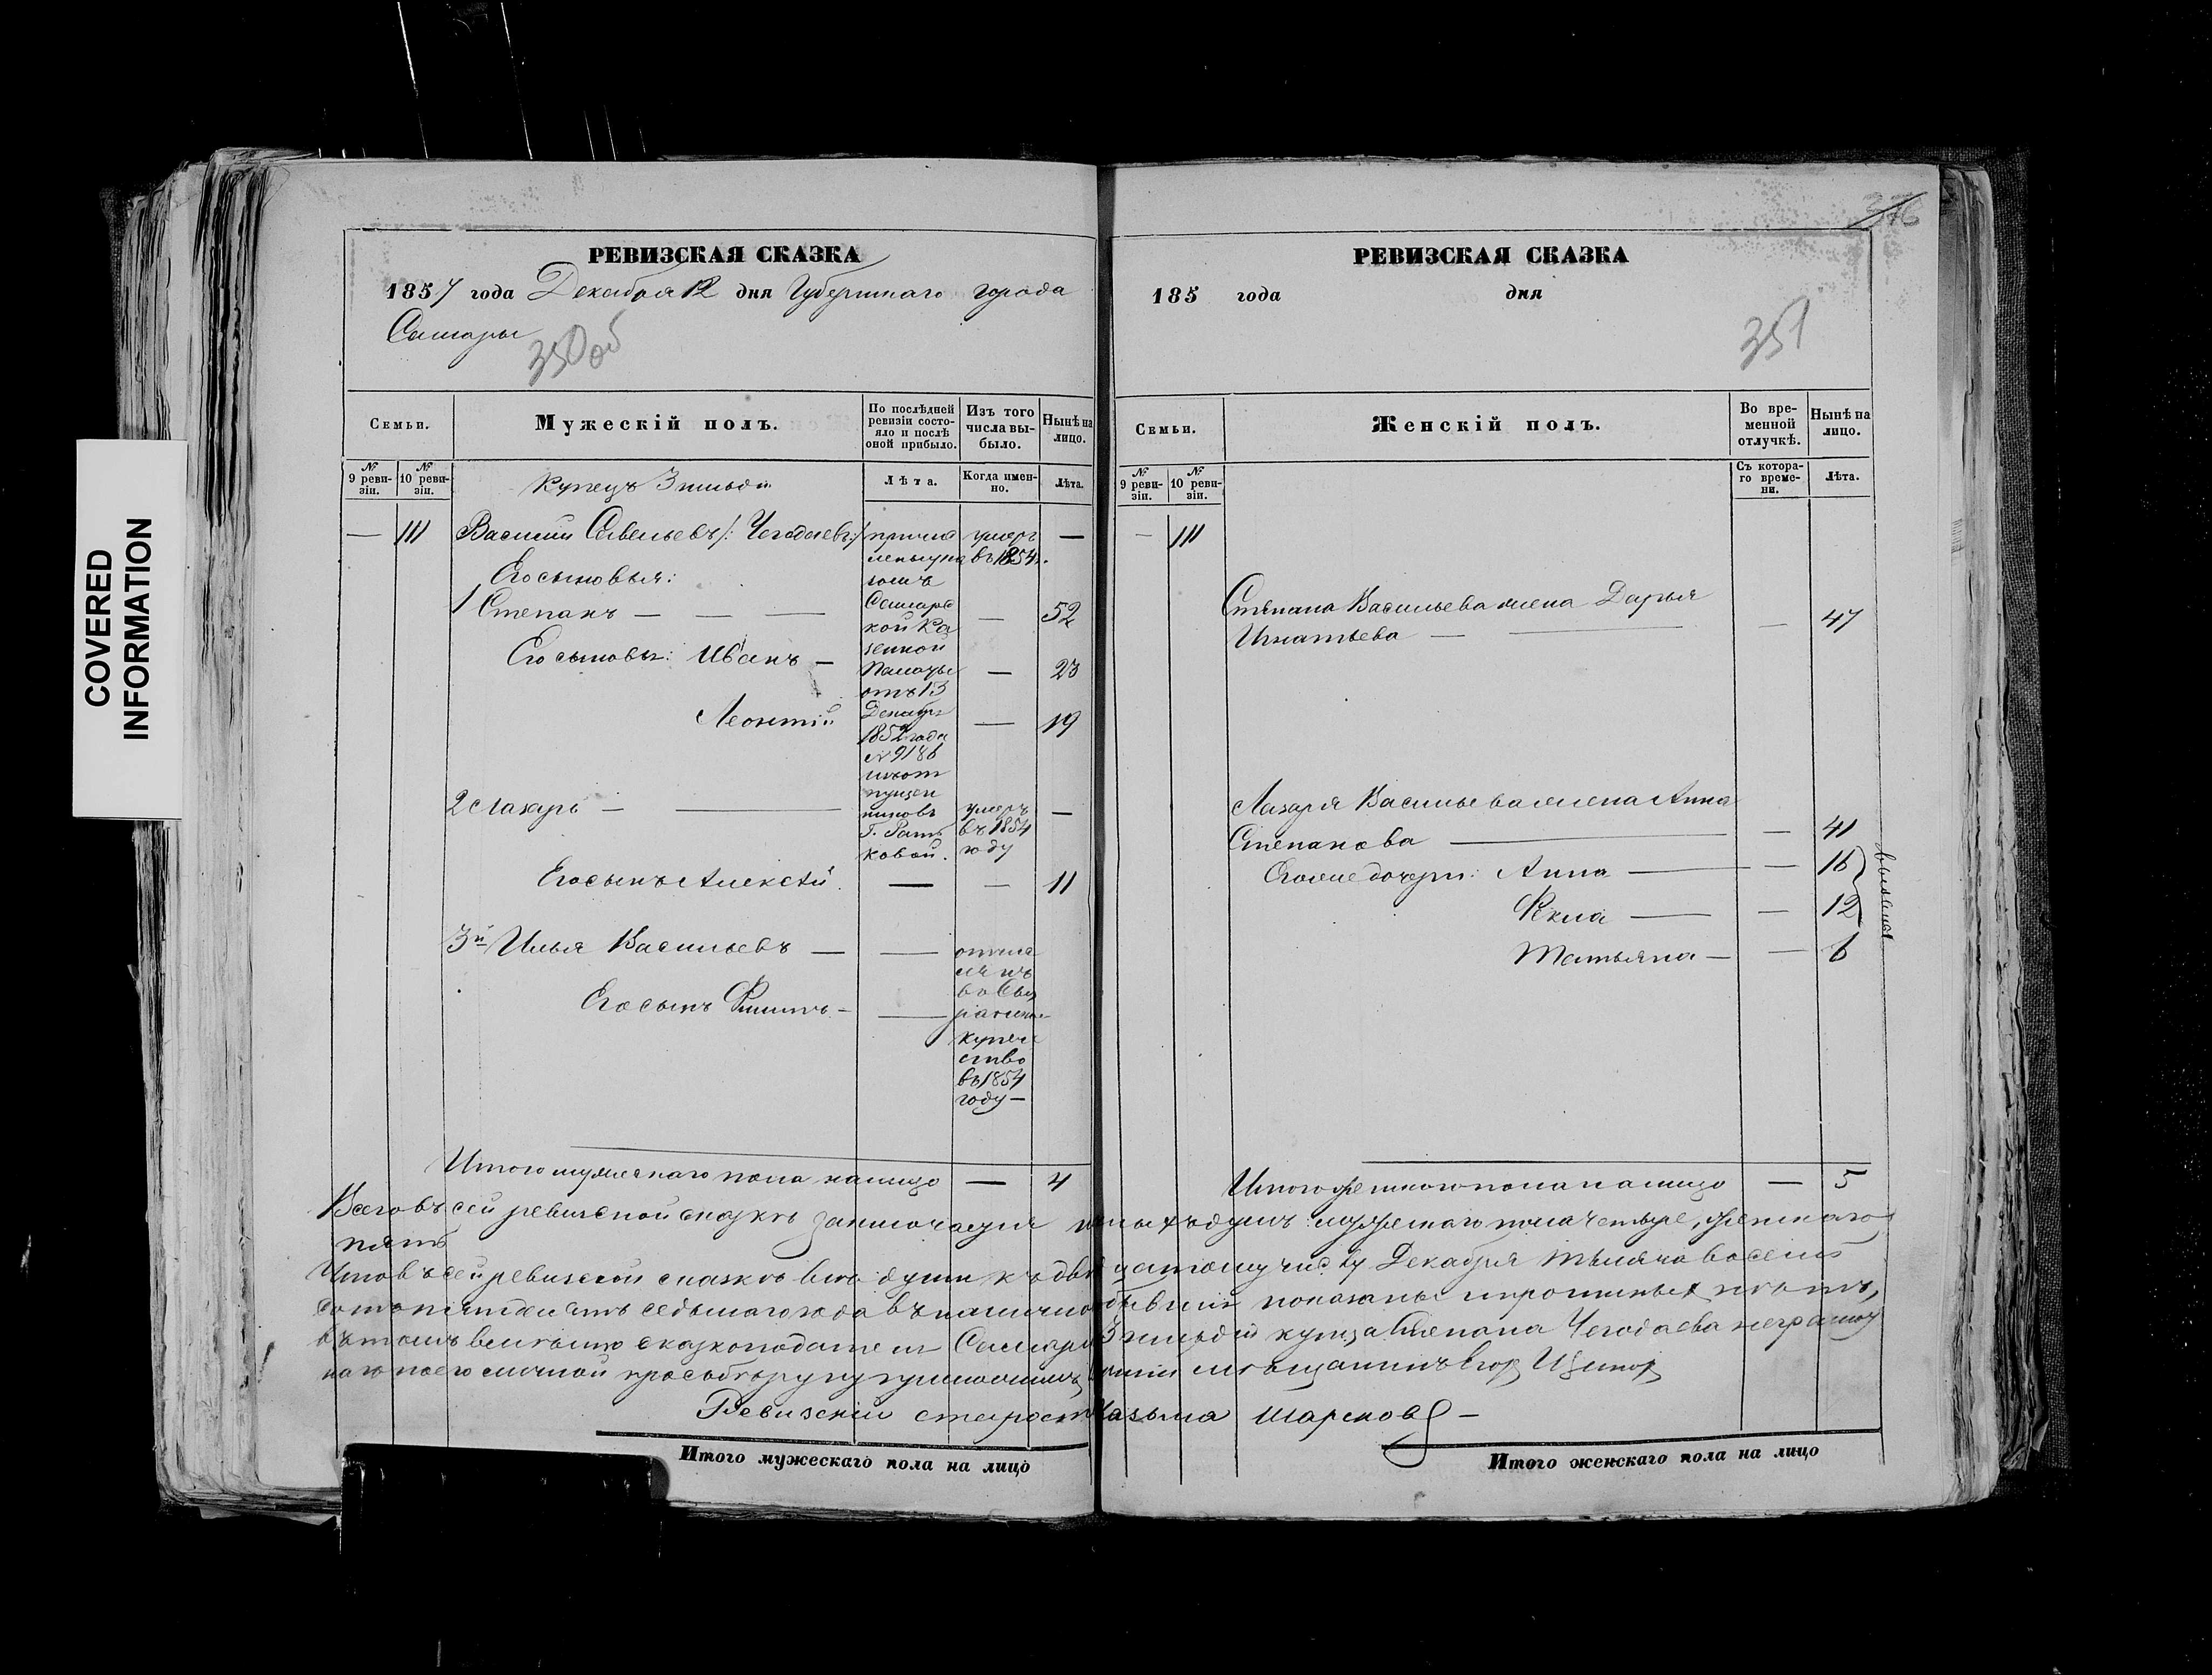 COVERED
INFORMATION
РЕВИЗСКАЯ СКАЗКА
1857 года Декабря 12 дня Губернскаго города
Самары
350об
Семьи.
Мужескій полъ.
По послѣдней ревизіи состояло и послѣ оной прибыло.
Изъ того числа выбыло.
Нынѣ на лицо.
№ 9 ревизіи.
№ 10 ревизіи.
Купецъ 3 гильдіи
Лѣта.
Когда именно.
Лѣта.
— 111 Василій Савельевъ /: Чегодаевъ :/
умеръ въ 1854 г. —
Его сыновья:
1 Степанъ — — — — 52
Его сыновья: Иванъ — — 23
Леонтій — 19
2 Лазарь — — умеръ въ 1854 году —
причисленъ указомъ
Самарской Казенной
Палаты
отъ 13
Декабря
1852 года
№ 9186
изъ отпущенниковъ
Г.
Его сынъ Алексѣй — — 11
3й Илья Васильевъ — —
Его сынъ Филиппъ — —
купечество
въ 1854
году —
Итого мужескаго пола на лицо — 4
РЕВИЗСКАЯ СКАЗКА
185 года дня
376
351
Семьи.
Женскій полъ.
Во временной отлучкѣ.
Нынѣ на лицо.
№ 9 ревизіи.
№ 10 ревизіи.
Съ котораго времени.
Лѣта.
— 111
Степана Васильева жена Дарья
Игнатьева — — — 47
Лазаря Васильева жена Анна
Степанова — — 41
Его же дочери: Анна — — 16
Фекла — — 12
Татьяна — — 6
Итого женскаго пола на лицо — 5
Всего въ сей ревизской сказкѣ заключается наличныхъ душъ: мужескаго пола четыре, женскаго
пять
Что въ сей ревизской сказкѣ всѣ души къ двѣнадцатому числу Декабря тысяча восемь
сотъ пятьдесятъ седьмаго года въ наличности бывшія показаны и прописныхъ нѣтъ,
въ томъ вмѣсто сказкоподателя Самарскаго 3 гильдіи купца Степана Чегодаева неграмотнаго
по его личной прозьбѣ руку приложилъ мѣщанинъ Егор
Ревизскій староста Казьма Шарсновъ —
Итого мужескаго пола на лицо
Итого женскаго пола на лицо